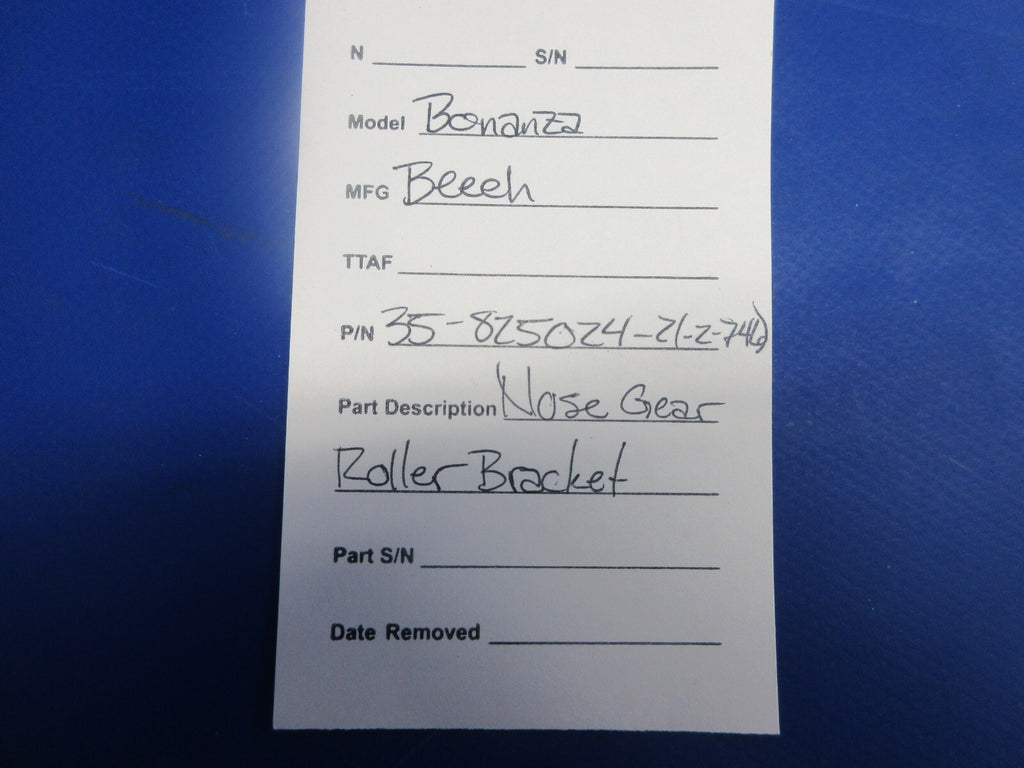 N S/N
Model Bonanza
MFG Beech
TTAF
P/N 35-825024-21-2-746
Part Description Nose Gear
Roller Bracket
Part S/N
Date Removed